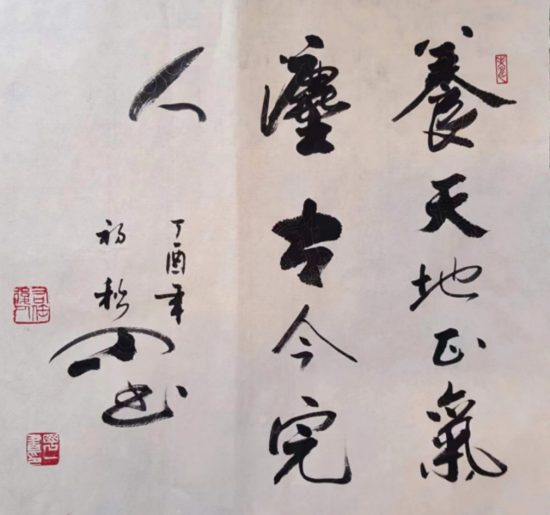 養天地正氣
灋古今完
人
丁酉年
初秋
书